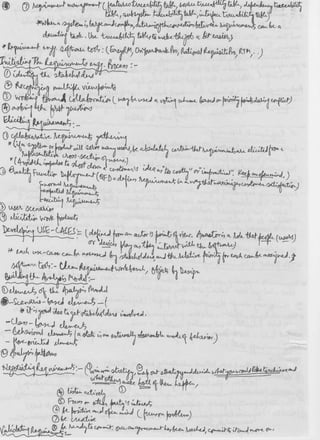 ⑧ ⑦ requirement management (features traceability table, source traceability table, dependency traceability
table, subsystem traceability table, interface traceability table)
* when a system is large and complex, determining the connection between requirements can be a
daunting task. Use traceability tables to make the job a bit easier,
* Requirement engg. software tools: (EasyRM, Rational Requisite Pro, RTM, ...)
Initiating The Requirements engg. Process :-
① identify the stakeholders
② Recognizing multiple viewpoints
③ working toward collaboration (may be used a voting scheme based on priority points during conflict)
④ asking the first questions
Eliciting Requirements:-
① collaborative requirement gathering
* (If a system or product will serve many users be absolutely certain that requirements are elicited from a
representative cross-section of users)
* (Avoid the impulse to shoot down a customer's idea as "too costly" or "impractical". Keep an open mind,)
② Quality Function Deployment (QFD → defines requirement in a way that maximizes customer satisfaction)
normal requirements
expected requirements
exciting requirements
③ user scenarios
④ elicitation work products
Developing USE-CASES:- (defined from an actor's point of view. An actor is a role that people (users)
or devices play as they interact with the software)
* each use-case can be assessed by stakeholders and the relative priority for each can be assigned.
software tools:- Clear Requirement workbench, Objects by Design
Building the Analysis Model:-
① elements of the Analysis Model
- Scenario-based elements - (
* it is good idea to get stakeholders involved.
- Class-based elements
- Behavioral elements (a state is an externally observable mode of behavior)
- Flow-oriented element
② Analysis patterns
Negotiating Requirements:- strategy, map out strategy and decide what you would like to achieve and
what others make both of them happen,
Listen actively
③ Focus on other party's interests
④ be positive and open mind (focus on problem)
⑤ be creative
⑥ be ready to commit, once an agreement has been reached, commit it and move on.
Validating Requirements:-